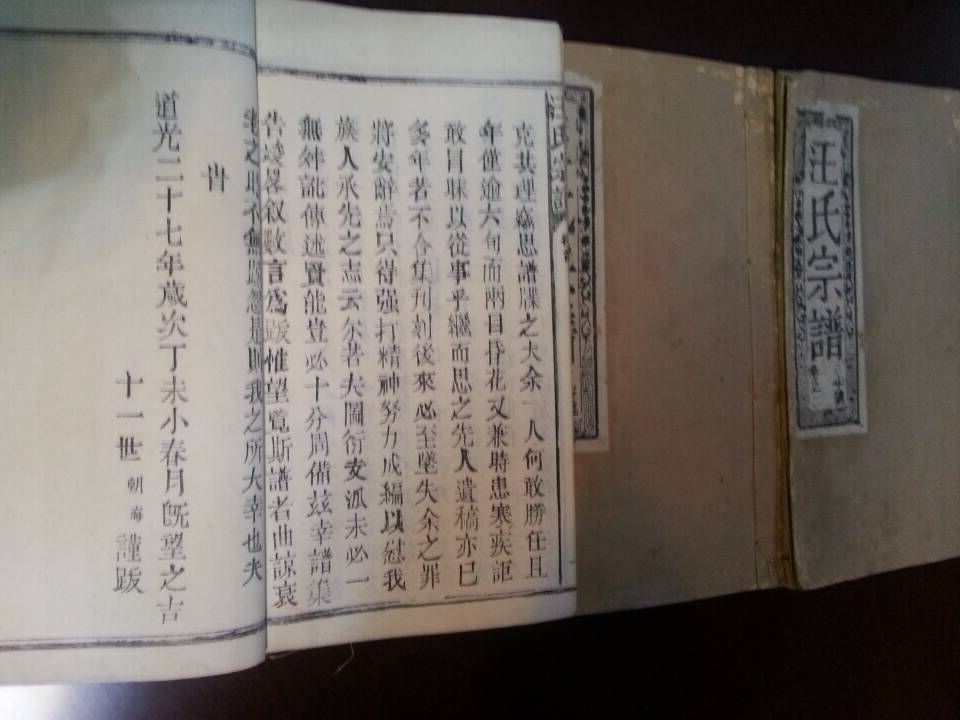 汪氏宗譜
汪氏宗譜
克其理思譜牒之大余一人何敢勝任且
年僅逾六旬而兩目昏花又兼時患寒疾詎
敢目眛以從事乎繼而思之先人遺稿亦已
多年若不合集刊剥後來必至墜失余之罪
將安辭焉只得强打精神努力成編以慰我
族人承先之志云尔若夫圖衍支派未必一
無舛訛傳述實能豈必十分周備兹幸譜集
告竣畧叙數言爲跋惟望覽斯譜者曲諒衰
耄之時不無踈忽是則我之所大幸也夫
旹
道光二十七年歲次丁未小春月旣望之吉
十一世朝海謹跋